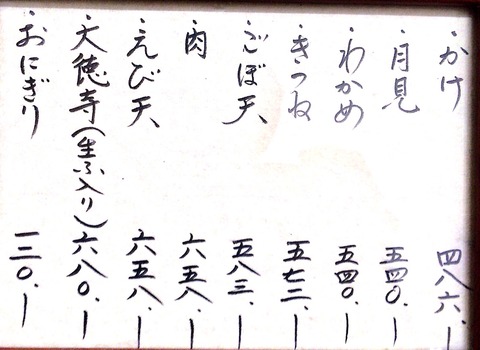 ・かけ 四八六.ー
・月見 五四〇.ー
・わかめ 五四〇.ー
・きつね 五七二.ー
・ごぼ天 五八三.ー
・肉 六五八.ー
・えび天 六五八.ー
・大徳寺(生ふ入り) 六八〇.ー
・おにぎり 一三〇.ー